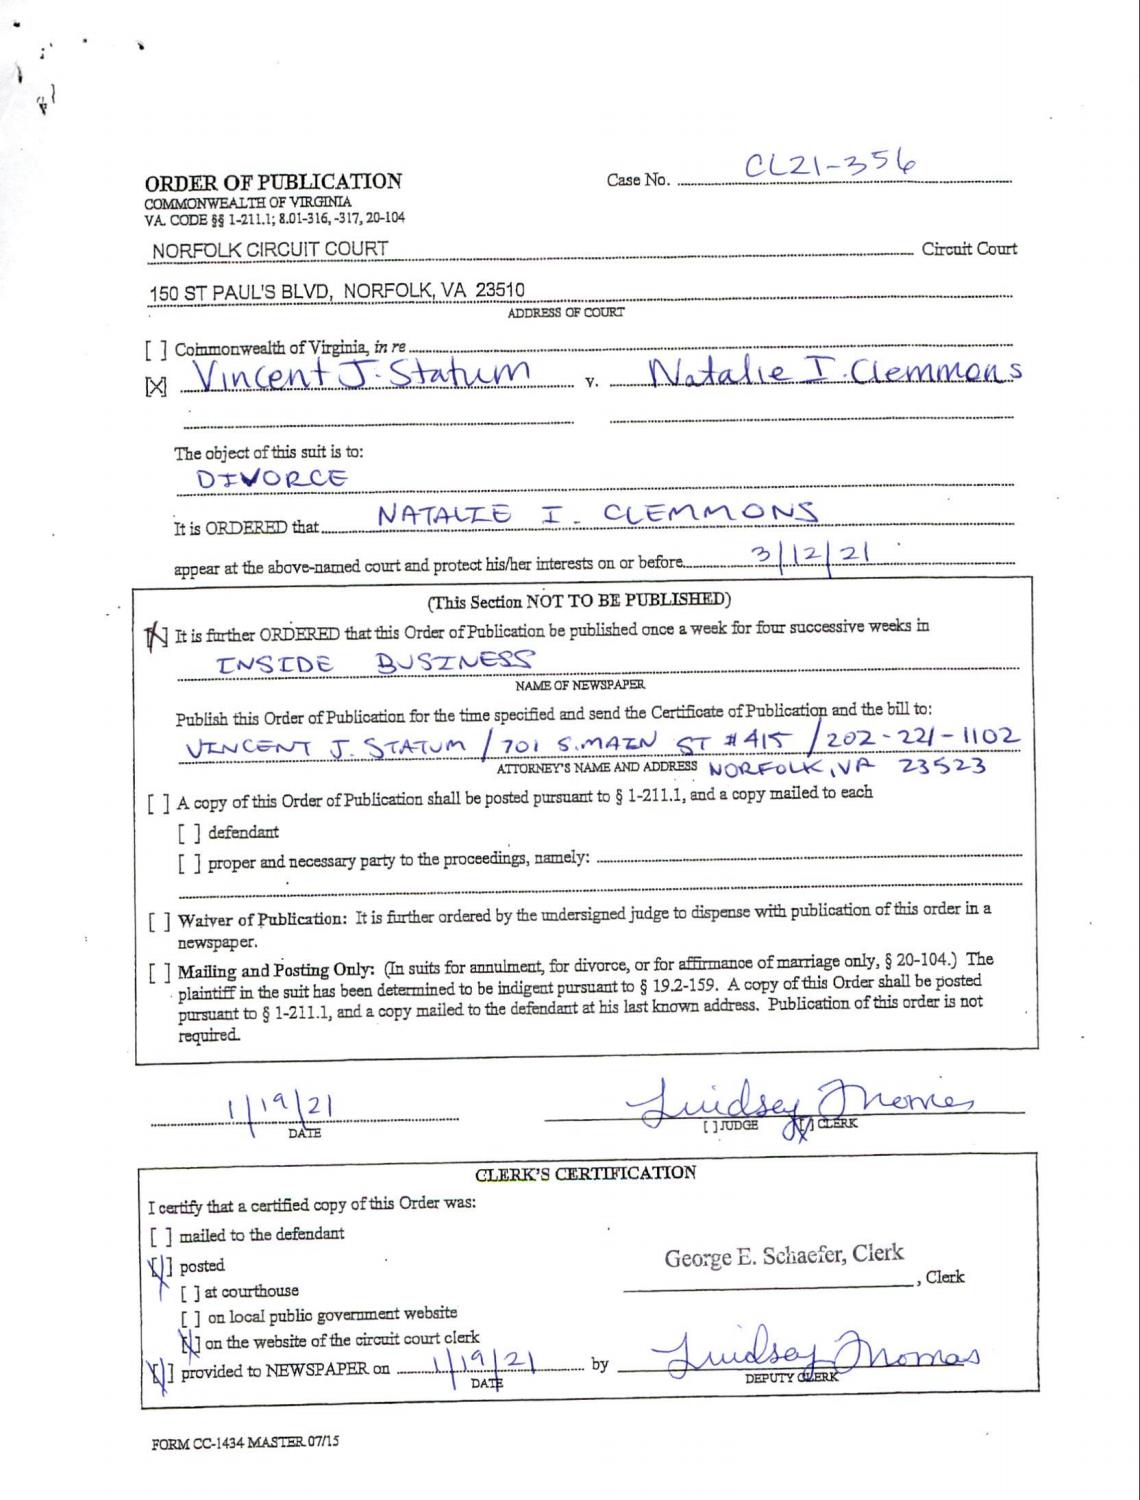 ORDER OF PUBLICATION
Case No. CL21-356
COMMONWEALTH OF VIRGINIA
VA. CODE §§ 1-211.1; 8.01-316, -317, 20-104
NORFOLK CIRCUIT COURT Circuit Court
150 ST PAUL'S BLVD, NORFOLK, VA 23510
ADDRESS OF COURT
[ ] Commonwealth of Virginia, in re
[X] Vincent J. Statum v. Natalie I. Clemmons
The object of this suit is to:
DIVORCE
It is ORDERED that NATALIE I. CLEMMONS
appear at the above-named court and protect his/her interests on or before 3/12/21
(This Section NOT TO BE PUBLISHED)
[X] It is further ORDERED that this Order of Publication be published once a week for four successive weeks in
INSIDE BUSINESS
NAME OF NEWSPAPER
Publish this Order of Publication for the time specified and send the Certificate of Publication and the bill to:
VINCENT J. STATUM / 701 S. MAIN ST #415 / 202-221-1102
ATTORNEY'S NAME AND ADDRESS NORFOLK, VA 23523
[ ] A copy of this Order of Publication shall be posted pursuant to § 1-211.1, and a copy mailed to each
[ ] defendant
[ ] proper and necessary party to the proceedings, namely:
[ ] Waiver of Publication: It is further ordered by the undersigned judge to dispense with publication of this order in a
newspaper.
[ ] Mailing and Posting Only: (In suits for annulment, for divorce, or for affirmance of marriage only, § 20-104.) The
plaintiff in the suit has been determined to be indigent pursuant to § 19.2-159. A copy of this Order shall be posted
pursuant to § 1-211.1, and a copy mailed to the defendant at his last known address. Publication of this order is not
required.
1/19/21 Lindsey Thomas
DATE [ ] JUDGE [X] CLERK
CLERK'S CERTIFICATION
I certify that a certified copy of this Order was:
[ ] mailed to the defendant
[X] posted
George E. Schaefer, Clerk
, Clerk
[ ] at courthouse
[ ] on local public government website
[X] on the website of the circuit court clerk
[X] provided to NEWSPAPER on 1/19/21 by Lindsey Thomas
DATE DEPUTY CLERK
FORM CC-1434 MASTER 07/15